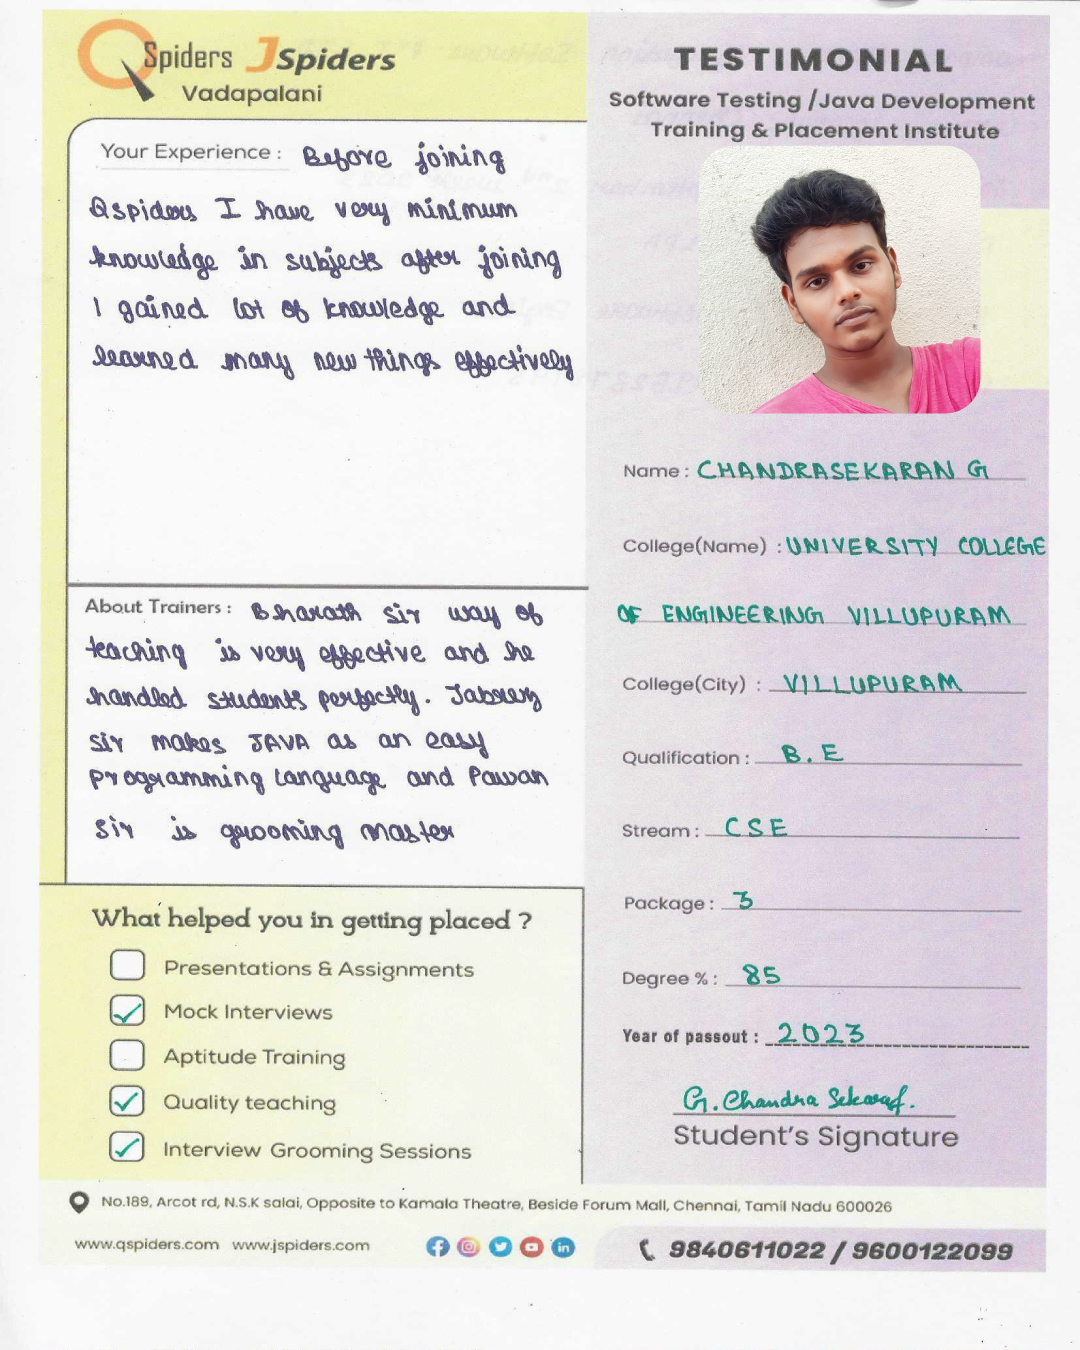 QSpiders JSpiders
Vadapalani
Your Experience : Before joining
Qspiders I have very minimum
knowledge in subjects after joining
I gained lot of knowledge and
learned many new things effectively
About Trainers : Bharath sir way of
teaching is very effective and he
handled students perfectly. Jabreez
sir makes JAVA as an easy
programming language and Pawan
sir is grooming master
What helped you in getting placed ?
Presentations & Assignments
Mock Interviews
Aptitude Training
Quality teaching
Interview Grooming Sessions
TESTIMONIAL
Software Testing /Java Development
Training & Placement Institute
Name : CHANDRASEKARAN G
College(Name) : UNIVERSITY COLLEGE
OF ENGINEERING VILLUPURAM
College(City) : VILLUPURAM
Qualification : B.E
Stream : CSE
Package : 3
Degree % : 85
Year of passout : 2023
G. Chandra Sekaran.
Student's Signature
No.189, Arcot rd, N.S.K salai, Opposite to Kamala Theatre, Beside Forum Mall, Chennai, Tamil Nadu 600026
www.qspiders.com www.jspiders.com
9840611022 / 9600122099